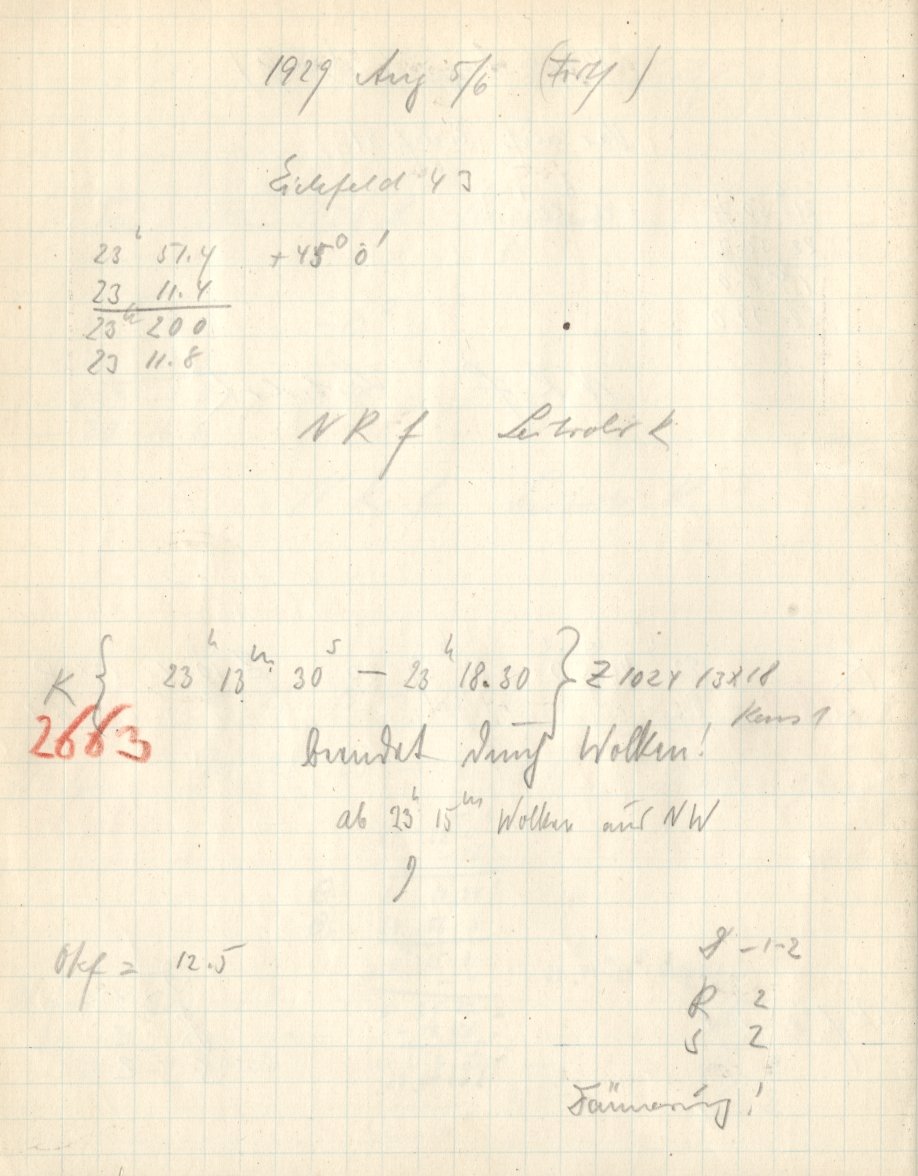 1929 Aug 5/6 (Forts)
Eichfeld 43
23ʰ 51.4 +45° 0'
23 11.4
23ʰ 200
23 11.8
N R f
K { 23ʰ 13ᵐ 30ˢ — 23ʰ 18.30 } Z 1024 13x18
2663
beendet durch Wolken!
ab 23ʰ 15ᵐ Wolken aus NW
Okf = 12.5
1-2
R 2
S 2
Dämmerung!